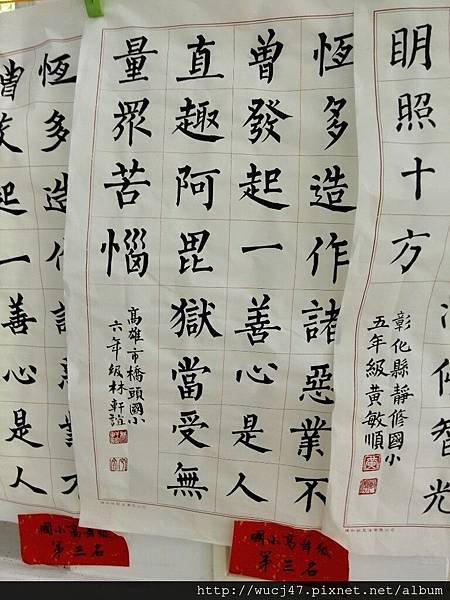 仰智光
眀照十方
彰化縣靜修國小
五年級黃敏順
恆多造作諸惡業不
曾發起一善心是人
直趣阿毘獄當受無
量眾苦惱
高雄市橋頭國小
六年級林軒誼
恆多造
起一善心是人
國小高年級
第三名
國小高年級
第三名
http://wucj47.pixnet.net/album